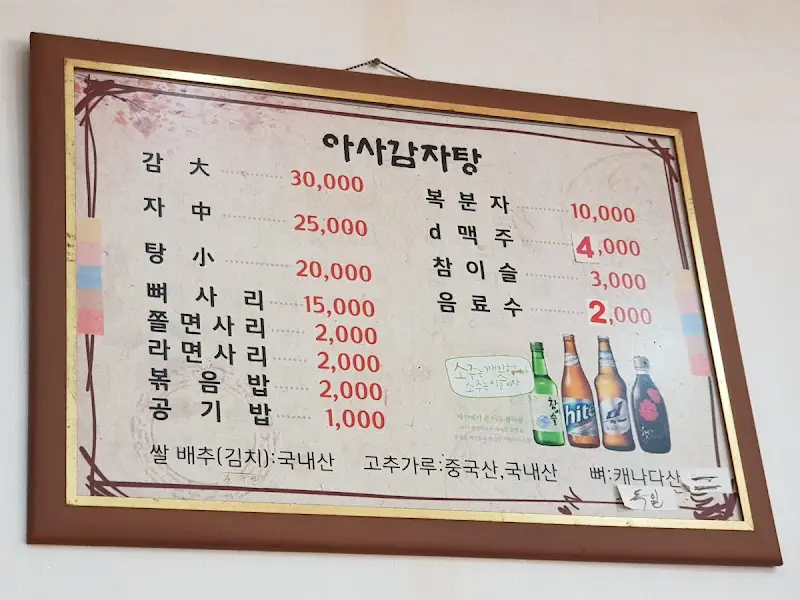 아사감자탕
감 大 30,000
자 中 25,000
탕 小 20,000
뼈 사 리 15,000
쫄 면 사 리 2,000
라 면 사 리 2,000
볶 음 밥 2,000
공 기 밥 1,000
복 분 자 10,000
d 맥 주 4,000
참 이 슬 3,000
음 료 수 2,000
소주는
소주는
참이슬
hite
쌀 배추(김치):국내산 고추가루:중국산,국내산 뼈:캐나다산
독일